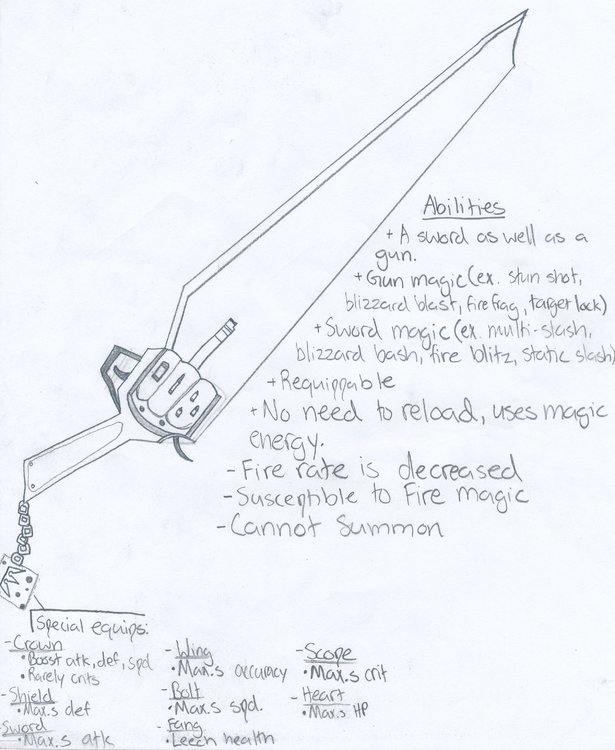 Abilities
+ A sword as well as a
gun.
+ Gun magic (ex. stun shot,
blizzard blast, fire frag, target lock)
+ Sword magic (ex. multi-slash,
blizzard bash, fire blitz, static slash)
+ Requippable
+ No need to reload, uses magic
energy.
- Fire rate is decreased
- Susceptible to Fire magic
- Cannot Summon
Special equips:
- Crown
• Boost atk, def, spd
• Rarely crits
- Shield
• Max.s def
- Sword
• Max.s atk
- Wing
• Max.s accuracy
- Bolt
• Max.s spd.
- Fang
• Leech health
- Scope
• Max.s crit
- Heart
• Max.s HP